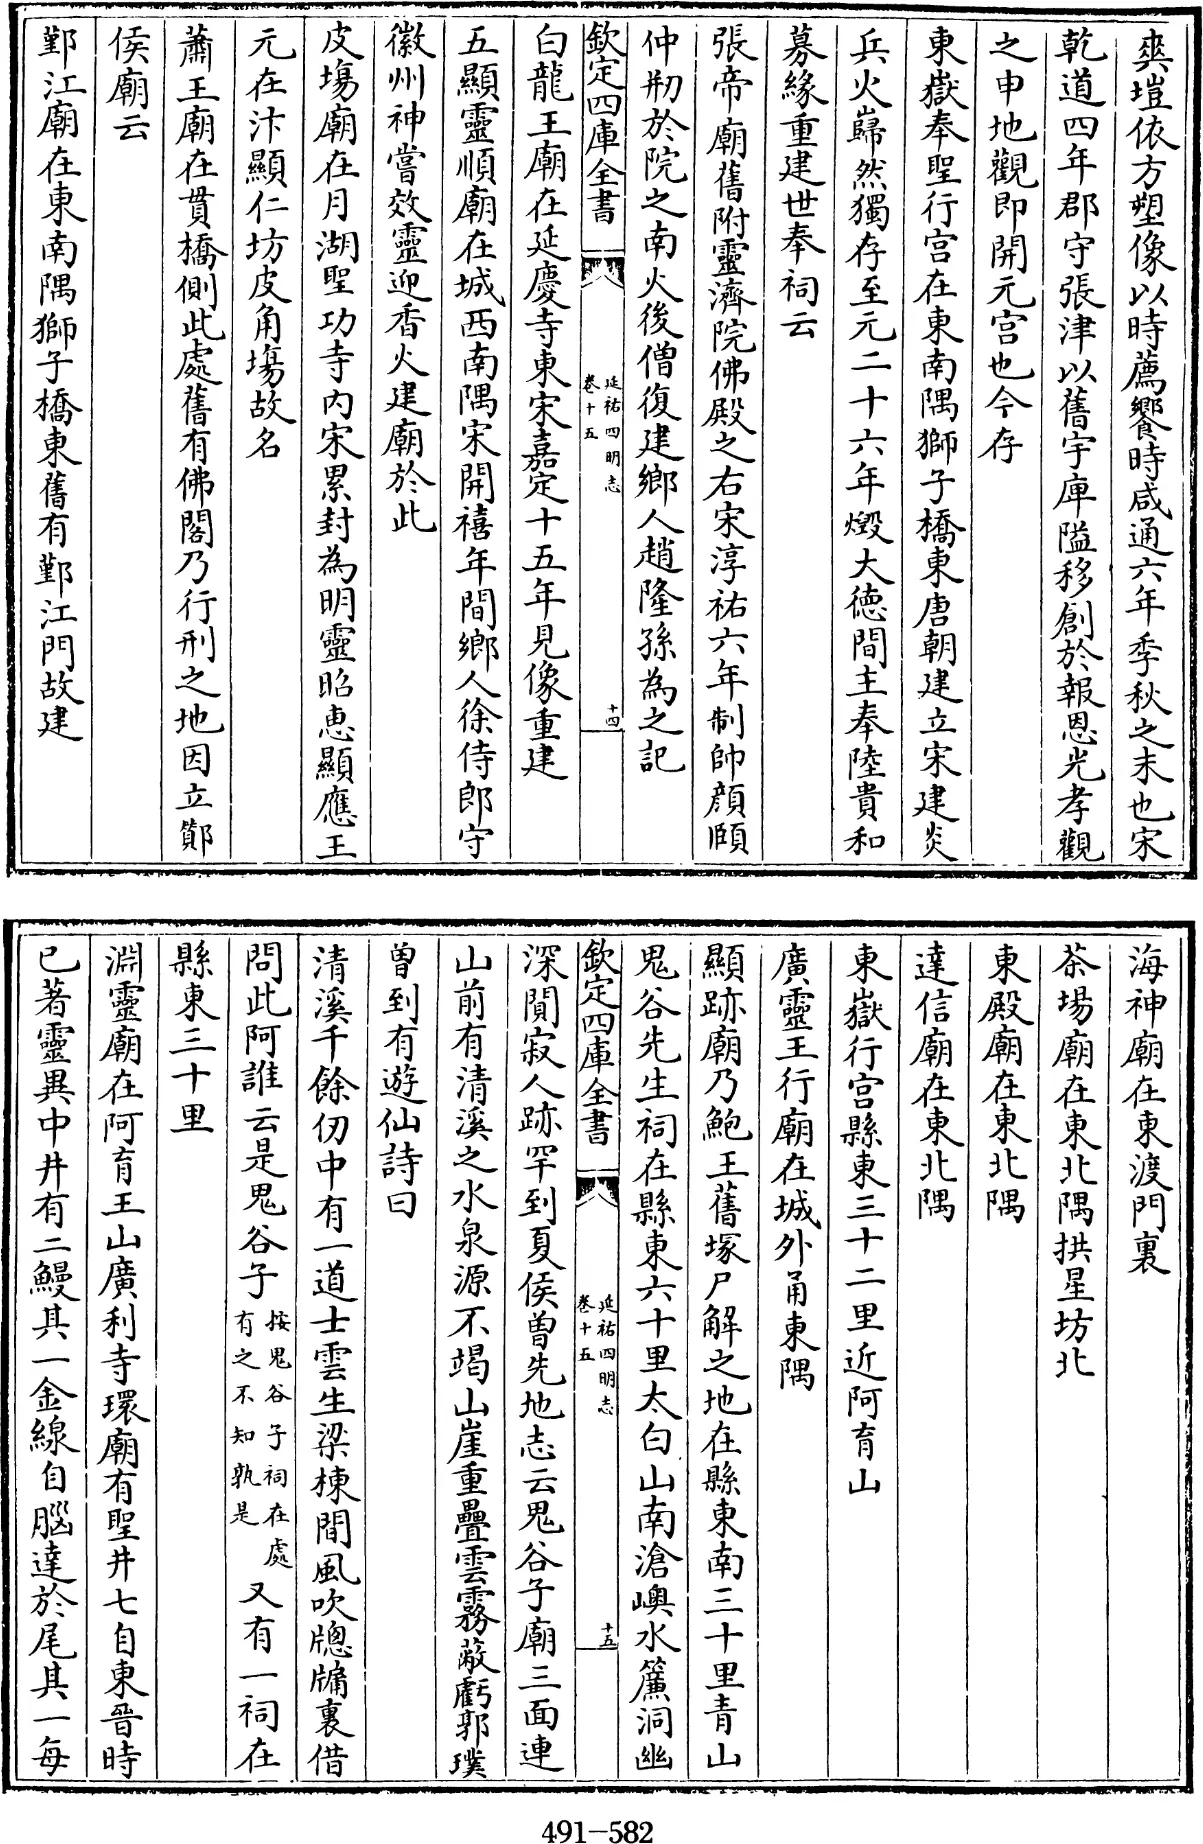 爽塏依方塑像以時薦饗時咸通六年季秋之末也宋
乾道四年郡守張津以舊宇庳隘移創於報恩光孝觀
之申地觀即開元宫也今存
東嶽奉聖行宫在東南隅獅子橋東唐朝建立宋建炎
兵火巋然獨存至元二十六年燬大徳間主奉陸貴和
募緣重建世奉祠云
張帝廟舊附靈濟院佛殿之右宋淳祐六年制帥顔頤
仲剏於院之南火後僧復建鄉人趙隆孫為之記
欽定四庫全書
延祐四明志
卷十五
十四
白龍王廟在延慶寺東宋嘉定十五年見像重建
五顯靈順廟在城西南隅宋開禧年間鄉人徐侍郎守
徽州神嘗效靈迎香火建廟於此
皮塲廟在月湖聖功寺内宋累封為明靈昭惠顯應王
元在汴顯仁坊皮角塲故名
蕭王廟在貫橋側此處舊有佛閣乃行刑之地因立酇
侯廟云
鄞江廟在東南隅獅子橋東舊有鄞江門故建
海神廟在東渡門裏
茶場廟在東北隅拱星坊北
東殿廟在東北隅
達信廟在東北隅
東嶽行宫縣東三十二里近阿育山
廣靈王行廟在城外甬東隅
顯跡廟乃鮑王舊塚尸解之地在縣東南三十里青山
鬼谷先生祠在縣東六十里太白山南滄嶼水簾洞幽
欽定四庫全書
延祐四明志
卷十五
十五
深閴寂人跡罕到夏侯曾先地志云鬼谷子廟三面連
山前有清溪之水泉源不竭山崖重疊雲霧蔽虧郭璞
曾到有遊仙詩曰
清溪千餘仞中有一道士雲生梁棟間風吹牕牗裏借
問此阿誰云是鬼谷子按鬼谷子祠在處有之不知孰是又有一祠在
縣東三十里
淵靈廟在阿育王山廣利寺環廟有聖井七自東晉時
已著靈異中井有二鰻其一金線自腦達於尾其一每
491-582